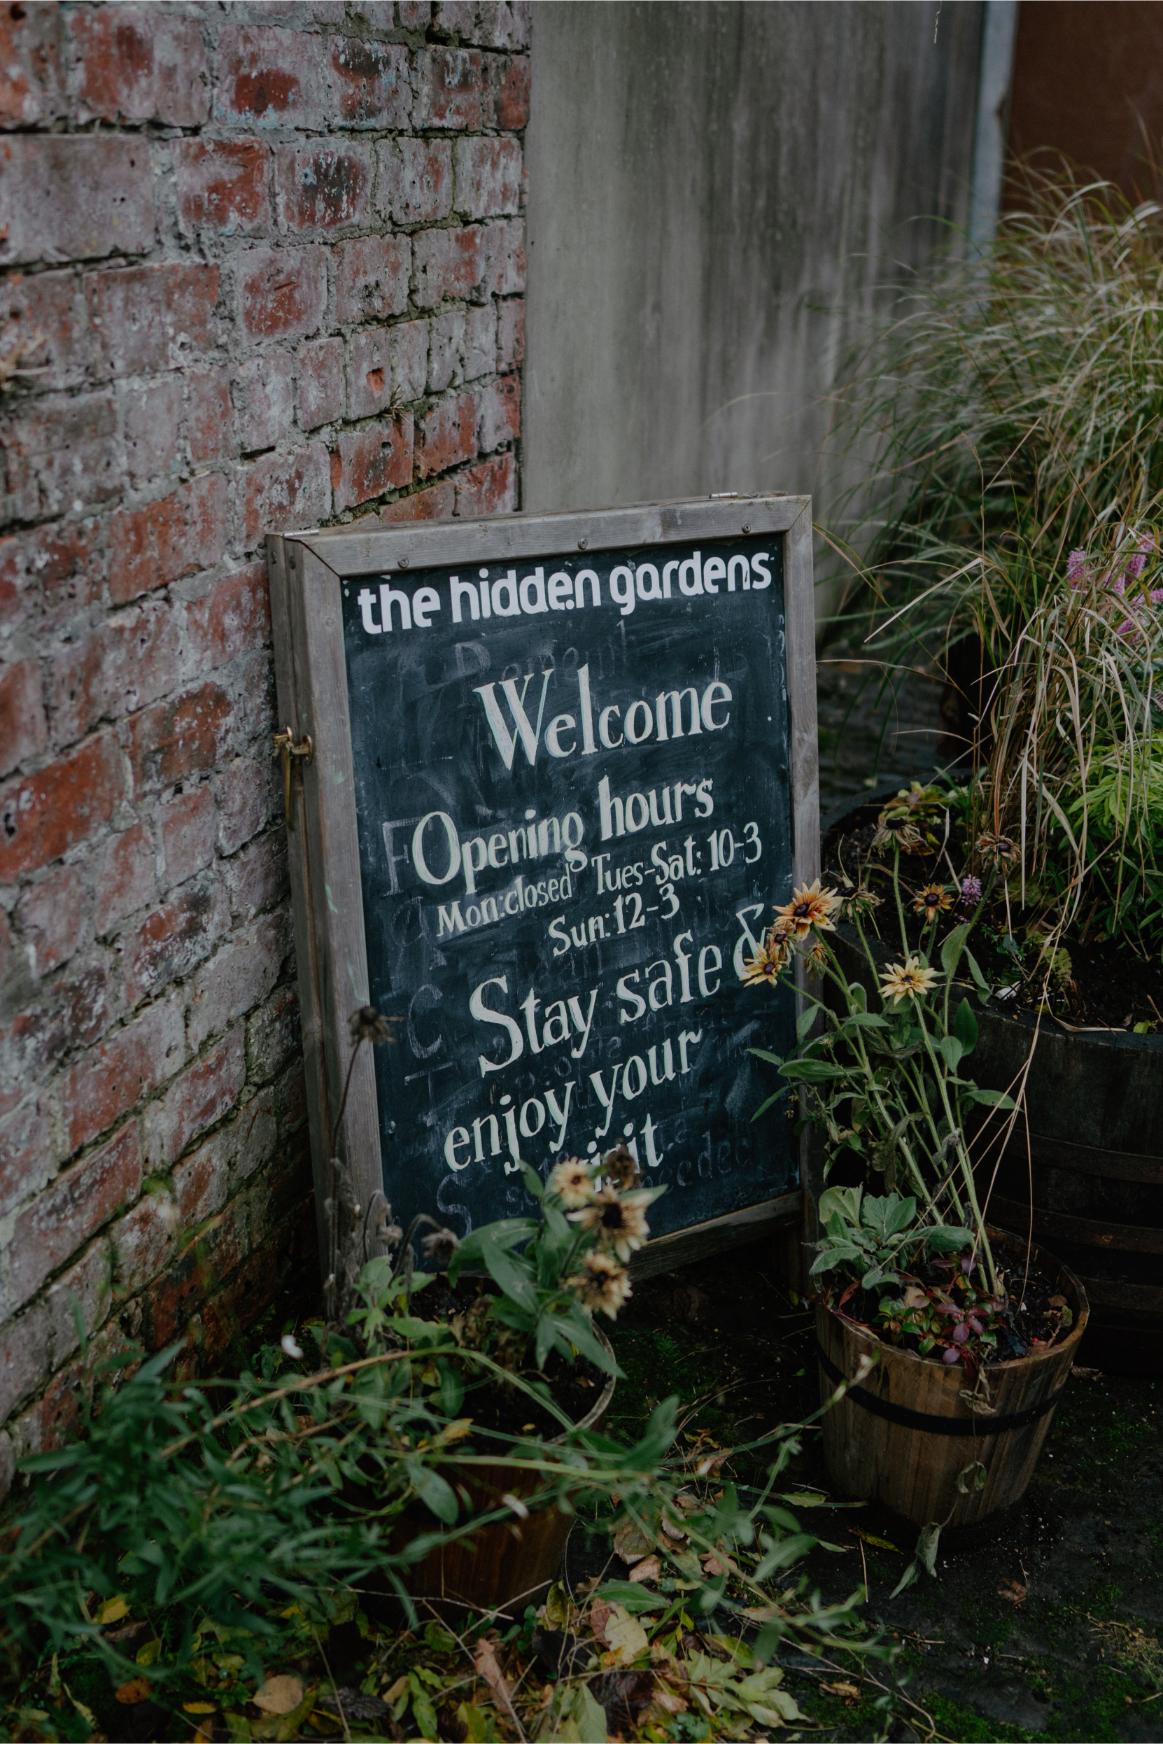 the hidden gardens
Welcome
Opening hours
Mon:closed Tues-Sat: 10-3
Sun: 12-3
Stay safe &
enjoy your
visit